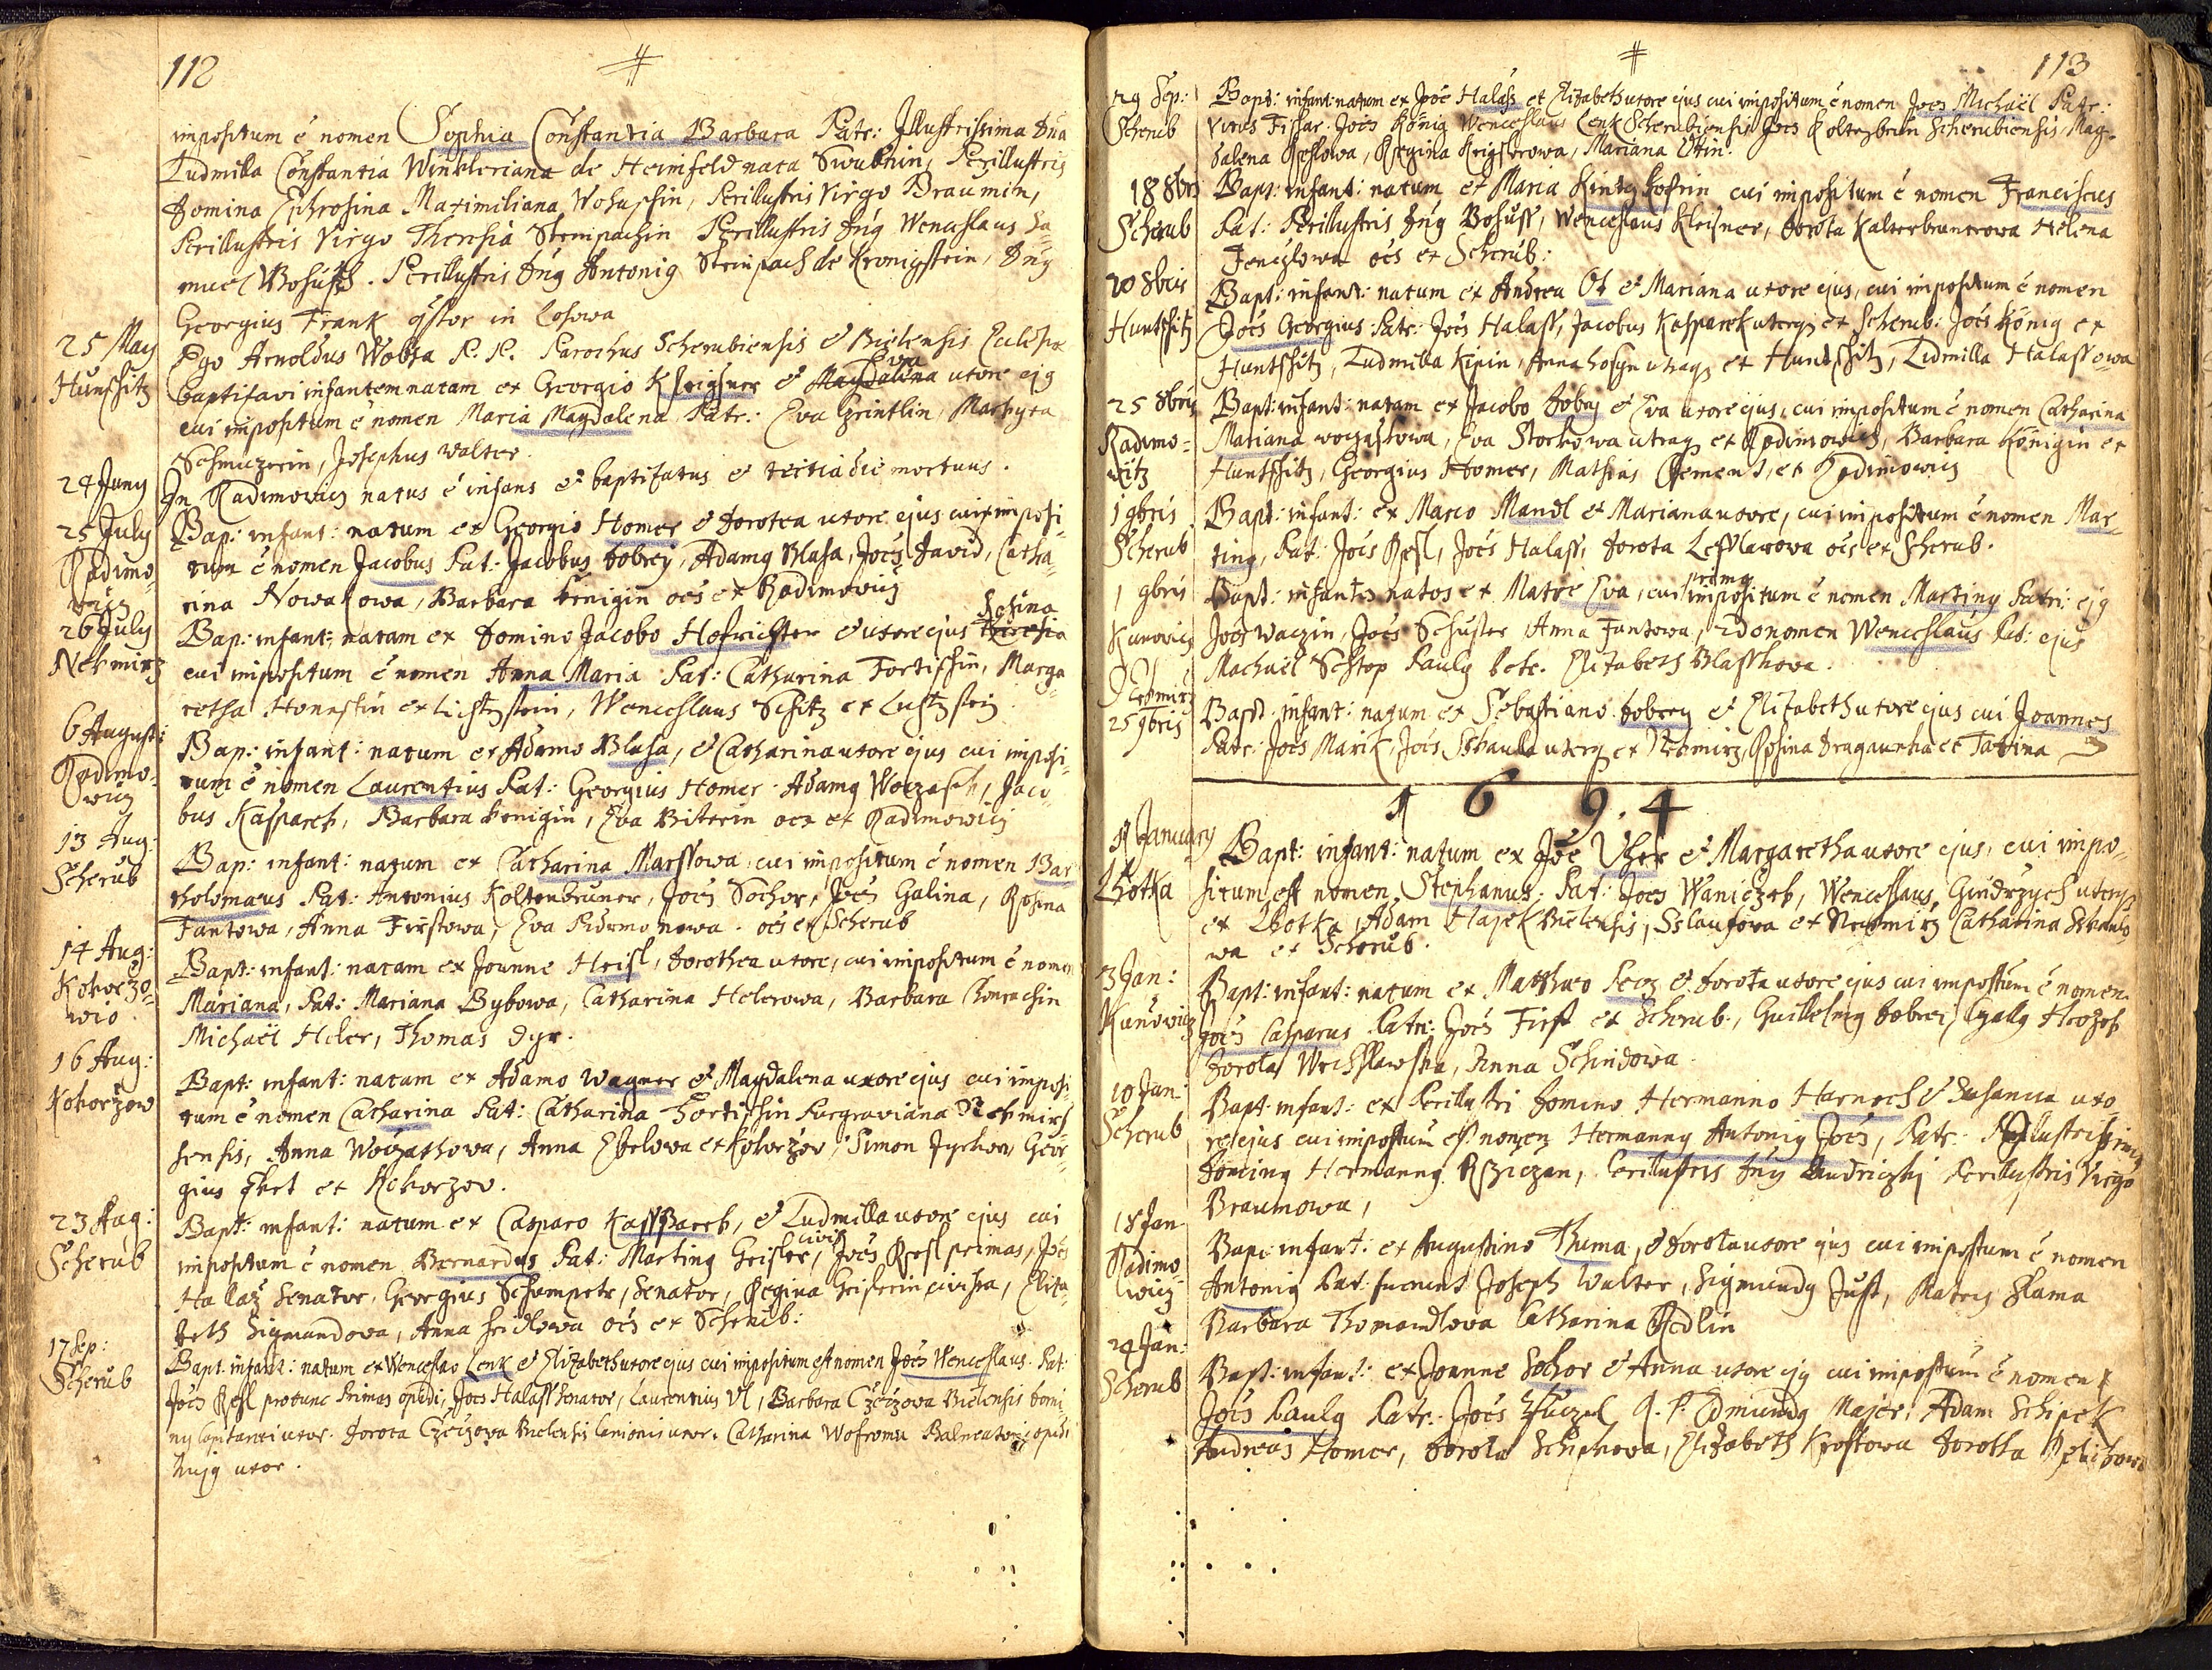 112
impositum ē nomen Sophia Constantia Barbara Patr: Illustrissima Dna
Ludmilla Constantia Winkleriana de Heimfeld nata Swubnin, Perillustris
Domina Ephrosina Maximiliana Wohussin, Perillustris Virgo Braumin,
Perillustris Virgo Theresia Steinpachin Perillustris Dnq Wenceslaus Sa¬
muel Bohussh. Perillustris Dnq Antoniq Steinpach de Kronigstein, Dnq
Georgius Frank qstor in Losowa
25 May
Hunshitz
Ego Arnoldus Wobsa P. P. Parochus Scherubiensis et Bielensis Eccl:
Eva
baptisavi infantem natam ex Georgio Kleigsner et Magdalena uxore ejq
cui impositum ē nomen Maria Magdalena Patr: Eva Grintlin, Martyra
Schmuzerin, Josephus Walter.
24 Juny
In Radimowicz natus ē infans et baptisatus et tertia die mortuus.
25 July
Radimo¬
wicz
Bap: infant: natum ex Georgio Homer et Dorotea uxore ejus cui imposi¬
tum ē nomen Jacobus Pat: Jacobus Dobrey, Adamq Blasa, Joēs David, Catha¬
rina Nowakowa, Barbara Kenigin oēs ex Radimowicz
26 July
Nekmirz
Rosina
Bap: infant: natam ex Domino Jacobo Hofrichter et uxore ejus Theresia
cui impositum ē nomen Anna Maria Pat: Catharina Fortischin, Marga¬
retha Honnstin ex Lichtstein, Wenceslaus Schitz ex Lichtstein
6 Augusti
Radimo¬
wicz
Bap: infant: natum ex Adamo Blasa, et Catharina uxore ejus cui imposi¬
tum ē nomen Laurentius Pat: Georgius Homer. Adamq Woczasch, Jaco¬
bus Kasparek, Barbara Kenigin, Eva Biterin oes ex Radimowicz
13 Aug:
Scherub
Bap: infant: natum ex Catharina Marssowa cui impositum ē nomen Bar
tholomaeus Pat: Antonius Koltenbruner, Joēs Sochor, Joēs Galina, Rosina
Fantowa, Anna Firstowa, Eva Pidrmonowa. oēs ex Scherub
14 Aug:
Kokorzo¬
wio
Bapt: infant: natam ex Joanne Heisl, Dorothea uxore, cui impositum ē nomen
Mariana, Pat: Mariana Bybowa, Catharina Helerowa, Barbara Chonrachin
Michaël Heler, Thomas Dyr.
16 Aug:
Kokorzow
Bapt: infant: natam ex Adamo Wagner et Magdalena uxore ejus cui imposi¬
tum ē nomen Catharina Pat: Catharina Fortischin Purgraviana Nekmirz
hensis, Anna Woczathowa, Anna Ebelowa ex Kokorzow, Simon Jyrkow, Geor¬
gius Ekrt ex Kokorzov.
23 Aug:
Scherub
Bapt: infant: natum ex Casparo Kasparek, et Ludmilla uxore ejus cui
civis
impositum ē nomen Bernardus Pat: Martinq Geisler, Joēs Resl primas, Joēs
Hallaz Senator, Georgius Schumpetr, Senator, Regina Geislerin civissa, Eliza¬
beth Sigmundowa, Anna Seidlowa oēs ex Scherub:
17 Sep:
Scherub
Bapt. infant: natum ex Wenceslao Lenk et Elizabeth uxore ejus cui impositum est nomen Joēs Wenceslaus. Pat:
Joēs Resl protunc Primas opidi, Joēs Halass Senator, Laurentius Vl, Barbara Czeczowa Bielensis Domi
ny Capitanei uxor. Dorota Czeczowa Bielensis Lanionis uxor. Catharina Wofroma Balneatoris opidi
hujq uxor.
113
29 Sep:
Scherub
Bapt: infant: natum ex Joōe Halass et Elizabeth uxore ejus cui impositum ē nomen Joēs Michaël Patr:
Vitus Fissar. Joēs König Wenceslaus Lenk Scherubiensis Joēs Koltezbrun Scherubiensis, Mag¬
dalena Reslowa, Regina Krigslerowa, Mariana Otin.
18 8bris
Scherub
Bapt: infant: natum ex Maria Kintzhofrin cui impositum ē nomen Franciscus
Pat: Perillustris Dnq Bohuss, Wenceslaus Kleisner, Dorota Kalterbrunerowa Helena
Fenczlowa oēs ex Scherub:
20 8bris
Huntschitz
Bapt: infant: natum ex Andrea Ot et Mariana uxore ejus, cui impositum ē nomen
Joēs Georgius Patr: Joēs Halass, Jacobus Kasparek uterq ex Scherub: Joēs König ex
Huntschitz, Ludmilla Kipin, Anna Hosyn utraq ex Huntschitz, Ludmilla Halassowa
25 8bris
Radimo¬
witz
Bapt: infant: natam ex Jacobo Dobey et Eva uxore ejus, cui impositum ē nomen Catharina
Mariana Woczastowa, Eva Storkowa utraq ex Radimowicz, Barbara Königin ex
Huntschitz, Georgius Homer, Mathias Clement, ex Radimowicz
1 9bris
Scherub
Bapt: infant: ex Marco Mandl et Mariana uxore, cui impositum ē nomen Mar¬
tinq, Pat: Joēs Resl, Joēs Halass, Dorota Lesslarowa oēs ex Scherub.
1 9bris
Kunowicz
primo
Bapt: infantes natos ex Matre Eva, cui impositum ē nomen Martinq Patri: ejq
Joēs Waczin, Joēs Schuster Anna Fantowa, 2do nomen Wenceslaus Pat: ejus
Machaël Schtop Paulq Petr. Elizabeth Blasskowa.
Nekmirz
25 9bris
Bapt: infant: natum ex Sebastiano Dobrey et Elizabeth uxore ejus cui Joannes
Patr: Joēs Marik, Joēs Skaula uterq ex Nekmirz, Rosina Dragaunka et Tatina
1 6 9. 4
1 January
Lhotka
Bapt: infant: natum ex Joē Uher et Margaretha uxore ejus, cui impo¬
situm est nomen Stephanus, Pat: Joēs Waniczek, Wenceslaus Gindrzych uterq
ex Lhotka, Adam Hajek Bielensis, Sslaufowa ex Nekmirz Catharina Skaulo
wa ex Scherub.
3 Jan:
Kunowicz
Bapt: infant: natum ex Matthaeo Pecz et Dorota uxore ejus cui impostum ē nomen
Joēs Casparus Patri: Joēs First ex Scherub., Guillelmq Dobrei, Gallq Hrozek
Dorota Wrchslawska, Anna Schindowa.
10 Jan:
Scherub
Bapt. infant: ex Perillustri Domino Hermanno Harnoch et Susanna uxo¬
re ejus cui impostum est nomen Hermannq Antoniq Joēs, Patr. Illustrissimq
Dominq Hermannq Rziczan, Perillustris Dnq Audriczkj Perillustris Virgo
Braumowa,
18 Jan
Radimo¬
wicz
Bapt: infant: ex Augustino Thuma, et Dorota uxore ejus cui impostum ē nomen
Antoniq Pat: fuerunt Joseph Walter, Sigmundq Just, Mateq Slama
Barbara Thomandlowa Catharina Redlin
24 Jan:
Scherub
Bapt: infant: ex Joanne Sohor et Anna uxore ejq cui impostum ē nomen
Joēs Paulq Patr: Joēs Fuczel, A. P. Edmundq Majer, Adam Schipek
Andreas Homer, Dorota Schipkowa, Elizabeth Krostowa Dorotha